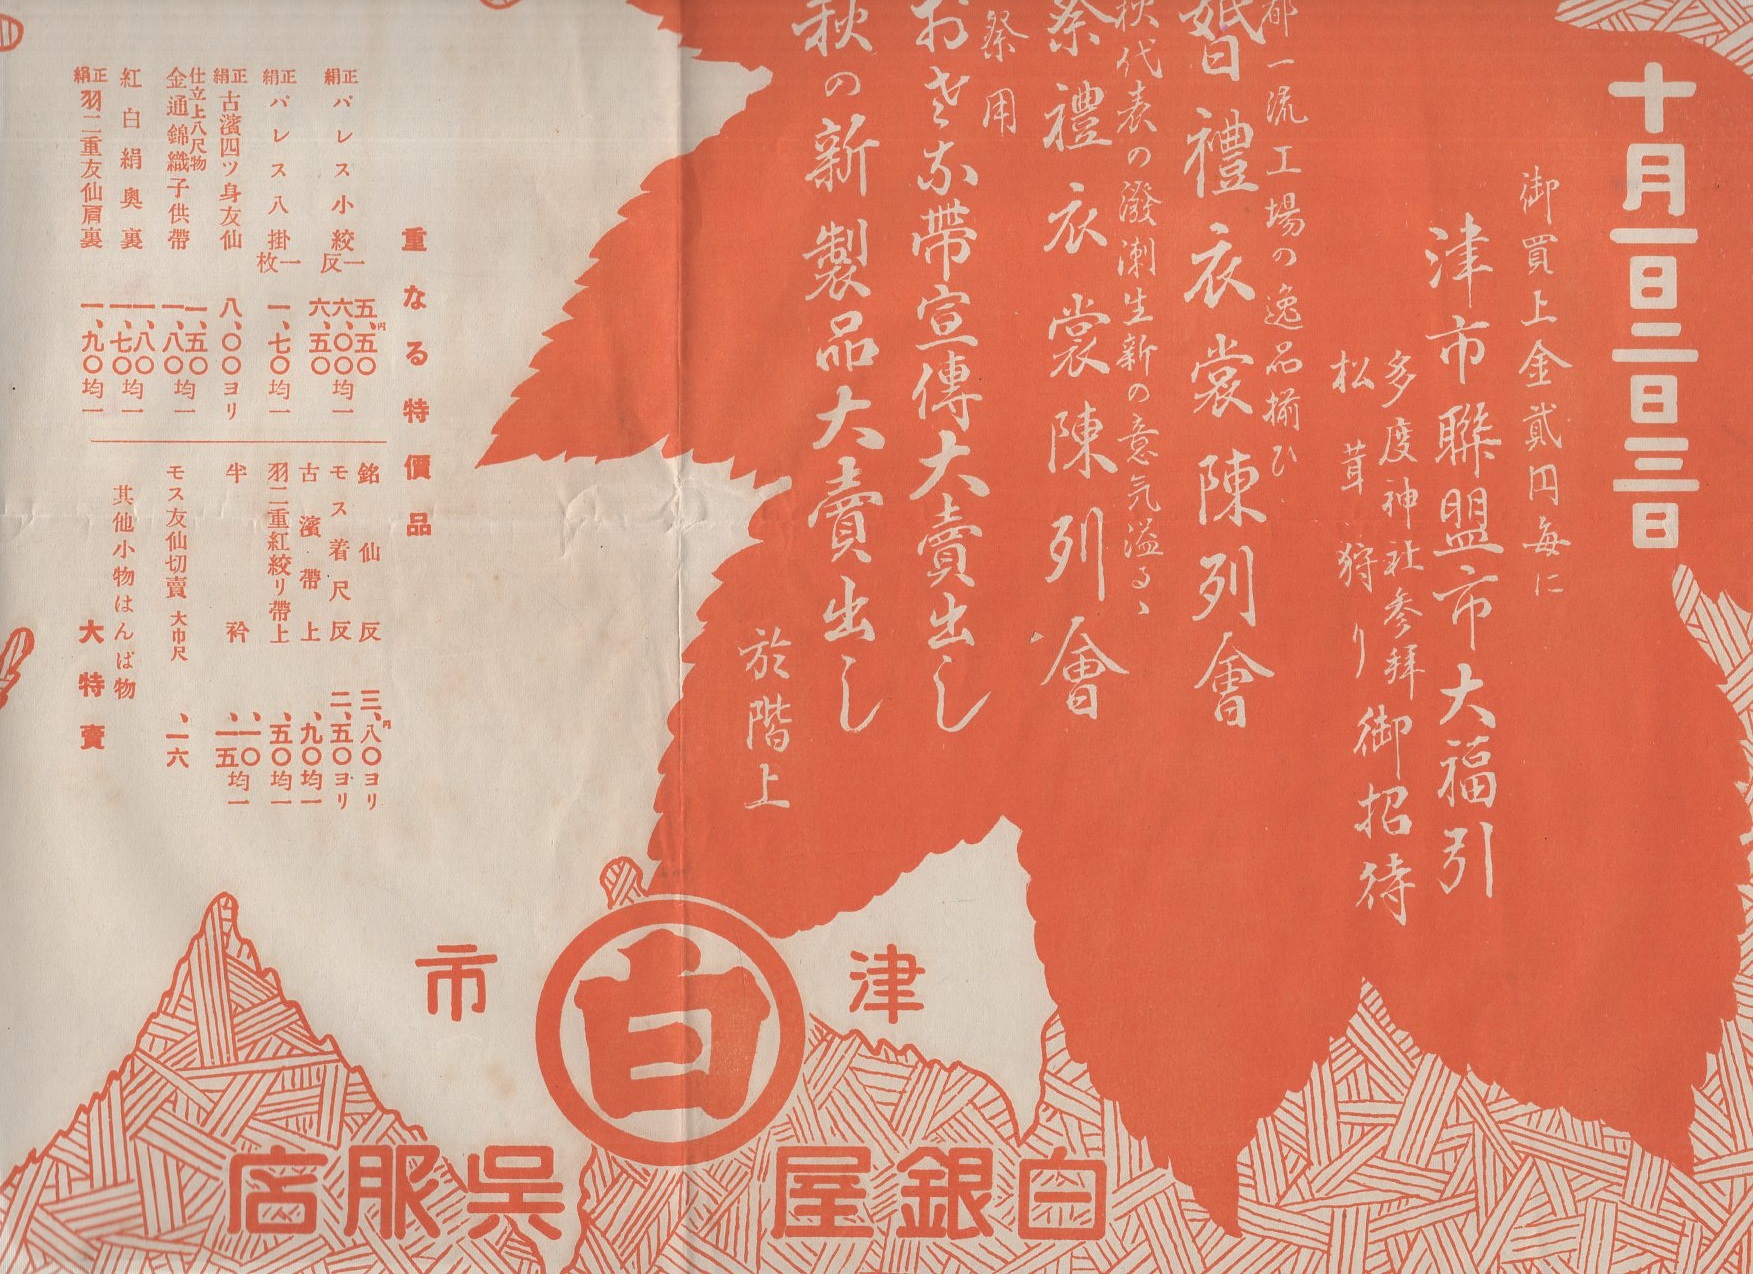 十月一日二日三日
御買上金貳円毎に
津市聯盟市大福引
多度神社参拜
松茸狩り御招待
都一流工場の逸品揃ひ
婚禮衣裳陳列會
秋代表の潑溂生新の意気溢るゝ
祭禮衣裳陳列會
祭用
おさな帯宣傳大賣出し
秋の新製品大賣出し
於階上
重なる特價品
正絹パレス小絞一反 五、五〇 六、〇〇 六、五〇 均一
正絹パレス八掛一枚 一、七〇均一
正絹古濱四ツ身友仙 八、〇〇ヨリ
仕立上八尺物
金通錦織子供帶 一、五〇 一、八〇 均一
紅白絹奥裏 一、八〇 一、七〇 均一
正絹羽二重友仙肩裏 一、九〇均一
銘仙反 三、八〇ヨリ
モス着尺反 二、五〇ヨリ
古濱帶上 、九〇均一
羽二重紅絞リ帶上 、五〇均一
半衿 、一〇 、一五 均一
モス友仙切賣 大巾尺 、一六
其他小物はんぱ物
大特賣
津市
白
白銀屋呉服店